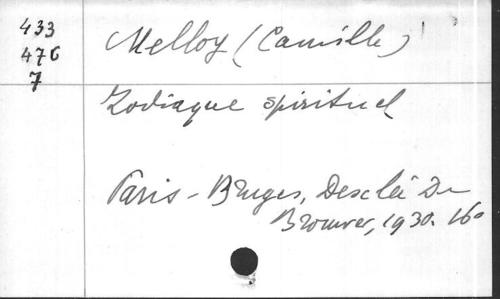 433
476
7
Melloy (Camille)
Zodiaque spirituel
Paris - Bruges, Desclée De
Brouwer, 1930. 16°